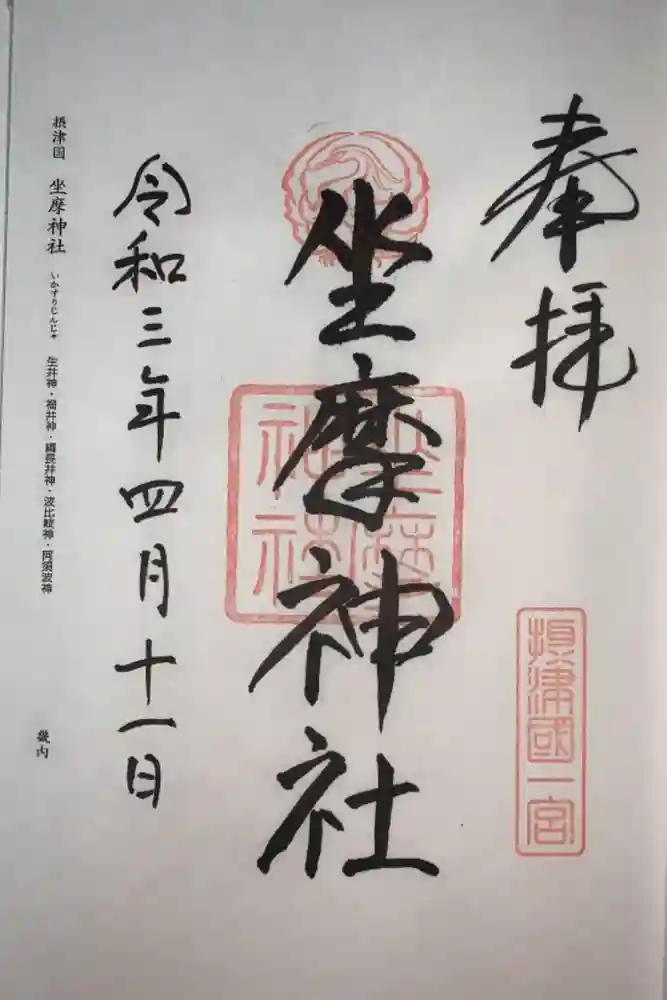 奉拝
摂津國一宮
坐摩神社
坐摩神社
令和三年四月十一日
摂津国 坐摩神社 いかすりじんじゃ 生井神・福井神・綱長井神・波比岐神・阿須波神 畿内